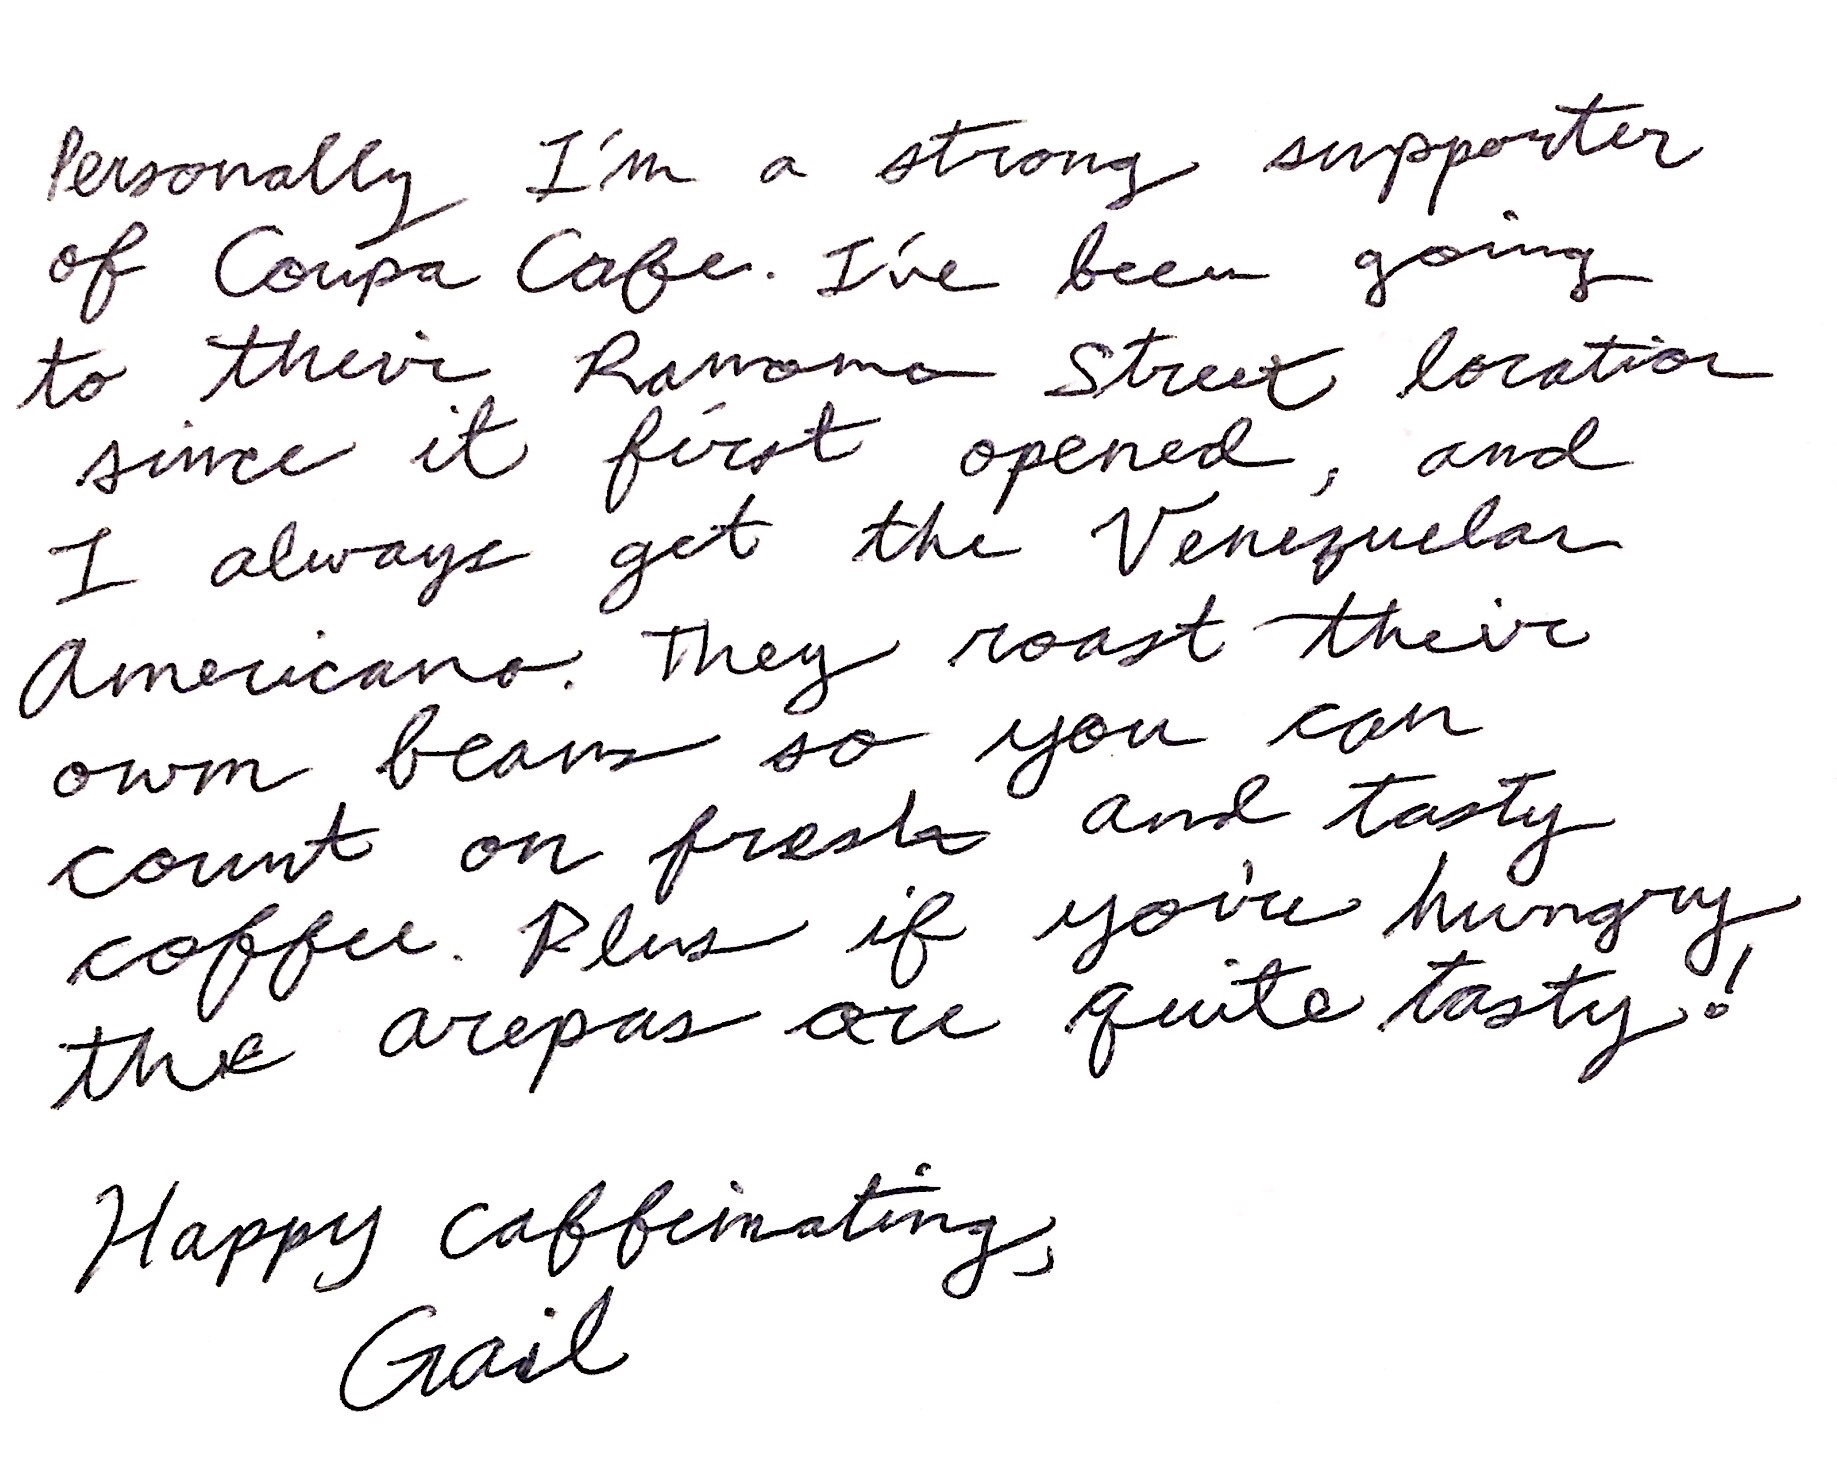 Personally I'm a strong supporter
of Coupa Cafe. I've been going
to their Ramona Street location
since it first opened, and
I always get the Venezuelan
Americano. They roast their
own beans so you can
count on fresh and tasty
coffee. Plus if you're hungry
the arepas are quite tasty!
Happy caffeinating,
Gail